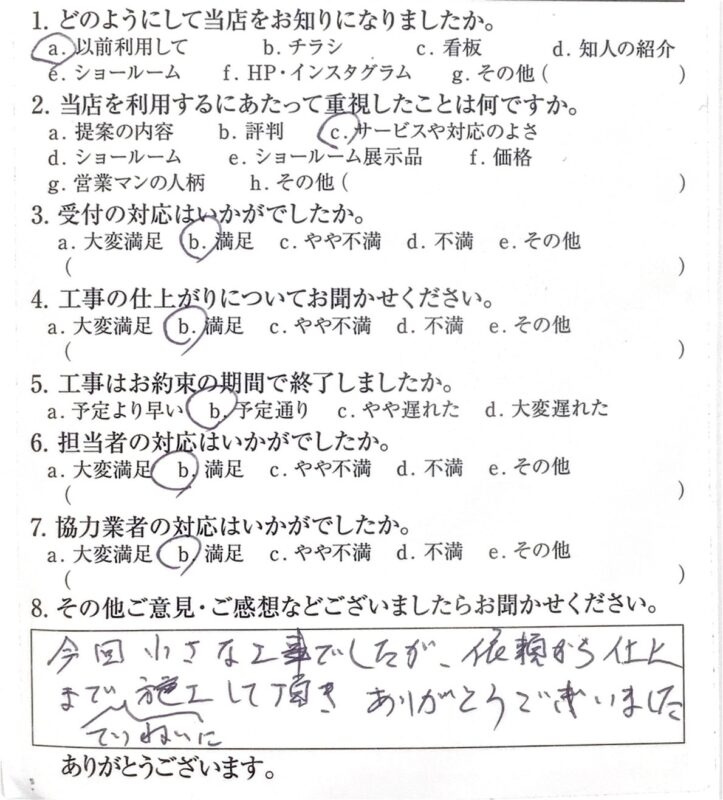 1. どのようにして当店をお知りになりましたか。
a. 以前利用して b. チラシ c. 看板 d. 知人の紹介
e. ショールーム f. HP・インスタグラム g. その他 ( )
2. 当店を利用するにあたって重視したことは何ですか。
a. 提案の内容 b. 評判 c. サービスや対応のよさ
d. ショールーム e. ショールーム展示品 f. 価格
g. 営業マンの人柄 h. その他 ( )
3. 受付の対応はいかがでしたか。
a. 大変満足 b. 満足 c. やや不満 d. 不満 e. その他
( )
4. 工事の仕上がりについてお聞かせください。
a. 大変満足 b. 満足 c. やや不満 d. 不満 e. その他
( )
5. 工事はお約束の期間で終了しましたか。
a. 予定より早い b. 予定通り c. やや遅れた d. 大変遅れた
6. 担当者の対応はいかがでしたか。
a. 大変満足 b. 満足 c. やや不満 d. 不満 e. その他
( )
7. 協力業者の対応はいかがでしたか。
a. 大変満足 b. 満足 c. やや不満 d. 不満 e. その他
( )
8. その他ご意見・ご感想などございましたらお聞かせください。
今回小さな工事でしたが、依頼から仕上
まで 施工して頂き ありがとうございました
ていねいに
ありがとうございます。